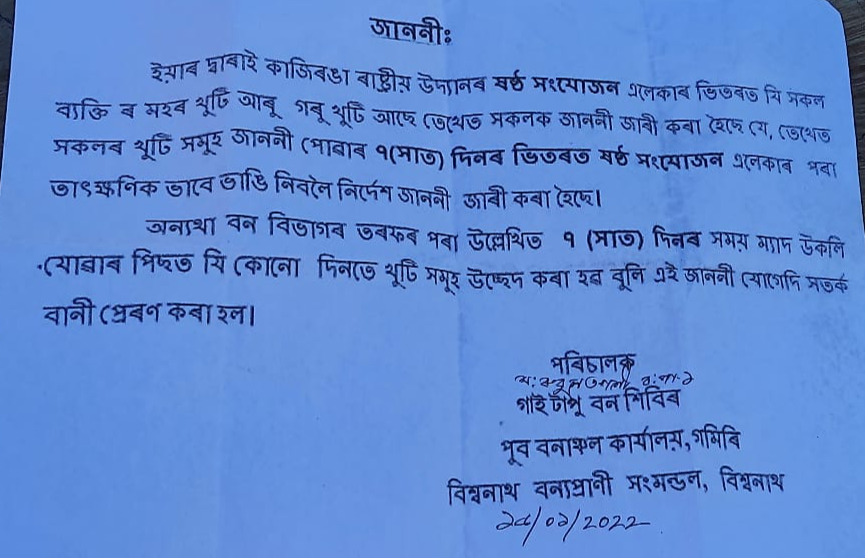 জাননীঃ
ইয়াৰ দ্বাৰাই কাজিৰঙা ৰাষ্ট্ৰীয় উদ্যানৰ ষষ্ঠ সংযোজন এলেকাৰ ভিতৰত যি সকল
ব্যক্তি ৰ মহৰ খুটি আৰু গৰু খুটি আছে তেখেত সকলক জাননী জাৰী কৰা হৈছে যে, তেখেত
সকলৰ খুটি সমূহ জাননী পোৱাৰ ৭(সাত) দিনৰ ভিতৰত ষষ্ঠ সংযোজন এলেকাৰ পৰা
তাৎক্ষনিক ভাবে ভাঙি নিবলৈ নিৰ্দেশ জাননী জাৰী কৰা হৈছে।
অন্যথা বন বিভাগৰ তৰফৰ পৰা উল্লেখিত ৭ (সাত) দিনৰ সময় ম্যাদ উকলি
যোৱাৰ পিছত যি কোনো দিনতে খুটি সমূহ উচ্ছেদ কৰা হব বুলি এই জাননী যোগেদি সতৰ্ক
বানী প্ৰেৰণ কৰা হল।
পৰিচালক
গাই টাপু বন শিবিৰ
পূব বনাঞ্চল কাৰ্যালয়, গমিৰি
বিশ্বনাথ বন্যপ্ৰানী সংমন্ডল, বিশ্বনাথ